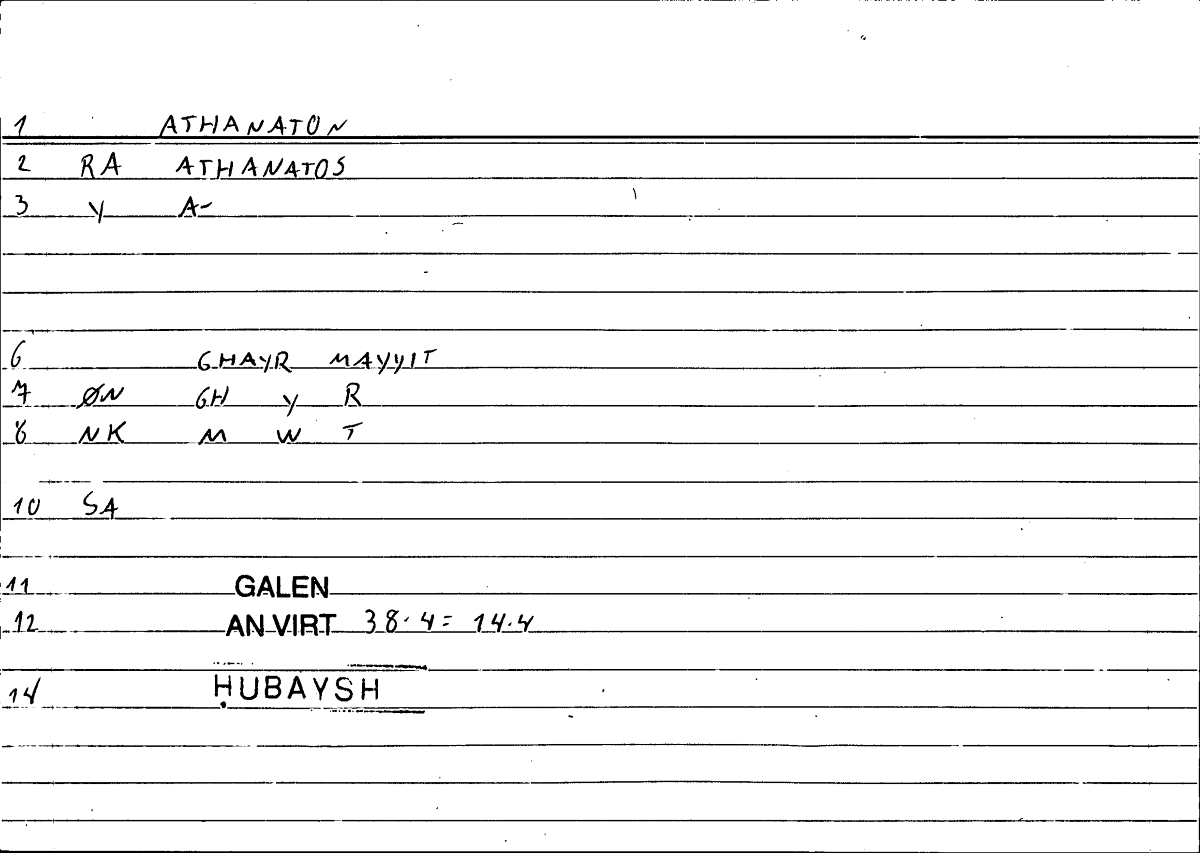 1 ATHANATON
2 RA ATHANATOS
3 Y A-
6 GHAYR MAYYIT
7 ØN GH Y R
8 NK M W T
10 SA
11 GALEN
12 AN VIRT 38.4= 14.4
14 ḤUBAYSH